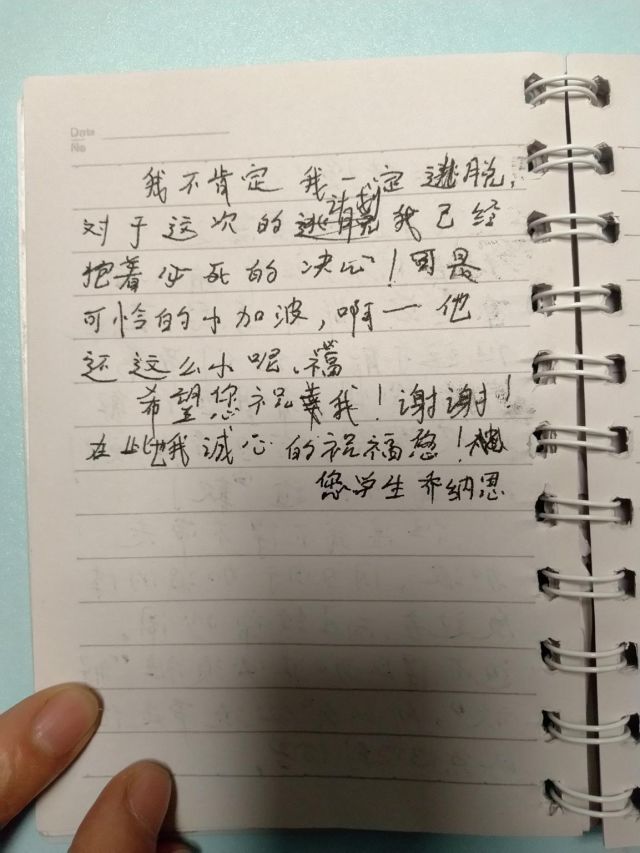 Date
No
我不肯定我一定逃脱,
对于这次的计划我已经
抱着必死的决心!可是
可怜的小加波,啊一他
还这么小呢、
希望您祝福我!谢谢!
在此我诚心的祝福您!
您学生乔纳恩